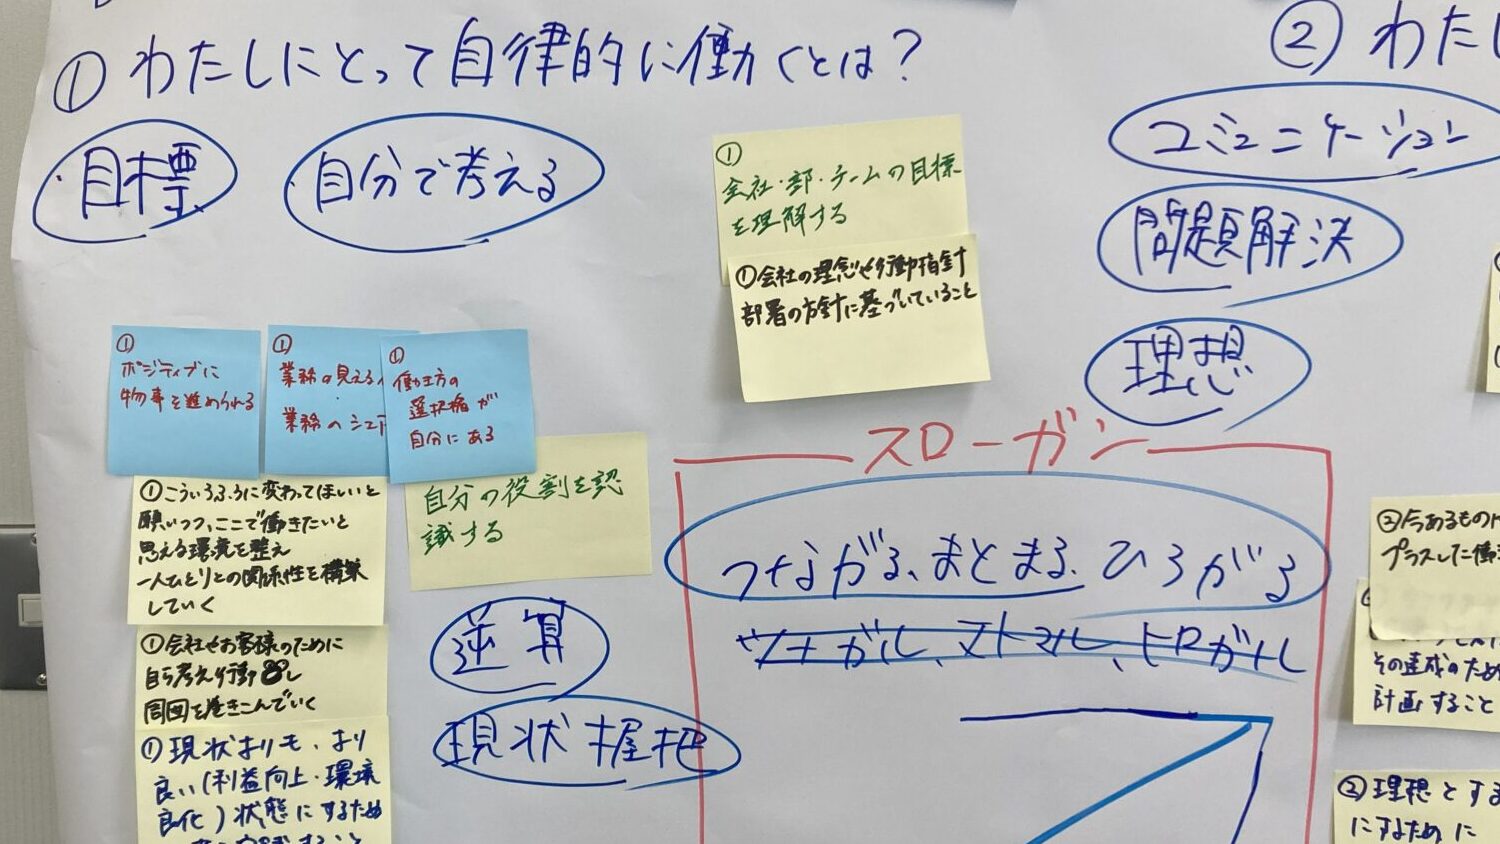 ① わたしにとって自律的に働くとは？
② わたし
目標
自分で考える
コミュニケーション
問題解決
理想
①
会社・部・チームの目標
を理解する
①会社の理念や行動指針
部署の方針に基づいていること
①
ポジティブに
物事を進められる
①
業務の見える
業務のシェア
①
働き方の
選択権が
自分にある
自分の役割を認
識する
①こういうふうに変わってほしいと
願いつつ、ここで働きたいと
思える環境を整え
一人ひとりとの関係性を構築
していく
①会社やお客様のために
自ら考え行動し
周囲を巻きこんでいく
①現状よりも、より
良い(利益向上・環境
良化)状態にするため
逆算
現状把握
スローガン
つながる、まとまる、ひろがる
ツナガル、マトマル、ヒロガル
②今あるものに
プラスした働
その達成のため
計画すること
②理想とする
にするために